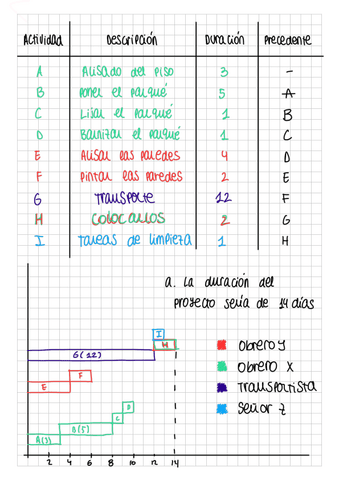 Actividad Descripción Duración Precedente
A Alisado del piso 3 -
B Poner el parqué 5 A
C Lijar el parqué 1 B
D Barnizar el parqué 1 C
E Alisar las paredes 4 D
F Pintar las paredes 2 E
G Transporte 12 F
H Colocarlos 2 G
I Tareas de limpieza 1 H
a. La duración del
proyecto sería de 14 días
I
H
G(12)
F
E
D
C
B(5)
A(3)
Obrero y
Obrero x
Transportista
Señor z
2 4 6 8 10 12 14